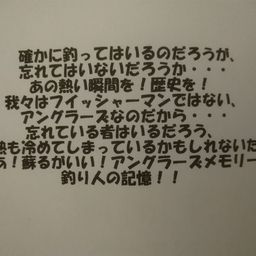 確かに釣ってはいるのだろうが、
忘れてはいないだろうか・・・
あの熱い瞬間を！歴史を！
我々はフイッシャーマンではない、
アングラーズなのだから・・・
忘れている者はいるだろう、
熱も冷めてしまっているかもしれないだ
あ！蘇るがいい！アングラーズメモリー
釣り人の記憶！！